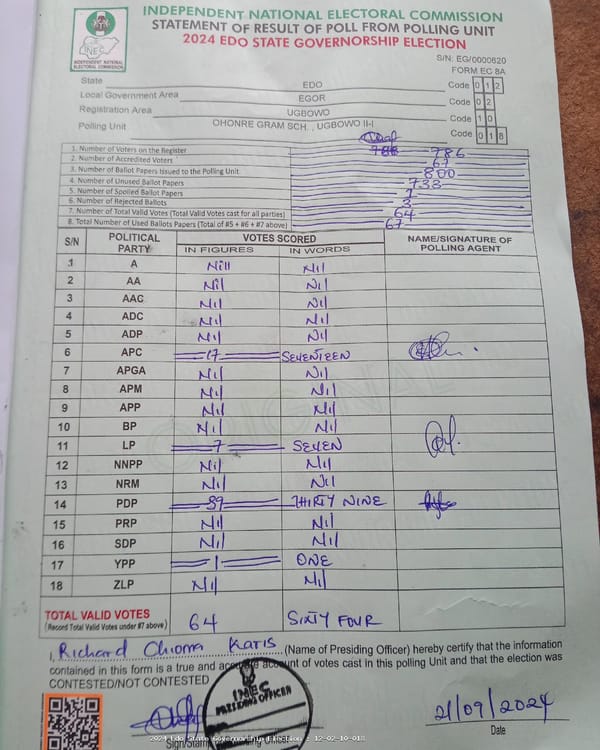 INDEPENDENT NATIONAL ELECTORAL COMMISSION
STATEMENT OF RESULT OF POLL FROM POLLING UNIT
2024 EDO STATE GOVERNORSHIP ELECTION
INEC
INDEPENDENT NATIONAL ELECTORAL COMMISSION
S/N: EG/0000620
FORM EC 8A
State EDO Code 0 1 2
Local Government Area EGOR Code 0 2
Registration Area UGBOWO Code 1 0
Polling Unit OHONRE GRAM SCH., UGBOWO II-I Code 0 1 8
1. Number of Voters on the Register 786
2. Number of Accredited Voters 67
3. Number of Ballot Papers Issued to the Polling Unit 800
4. Number of Unused Ballot Papers 733
5. Number of Spoiled Ballot Papers
6. Number of Rejected Ballots 3
7. Number of Total Valid Votes (Total Valid Votes cast for all parties) 64
8. Total Number of Used Ballots Papers (Total of #5 + #6 + #7 above) 67
S/N POLITICAL PARTY VOTES SCORED NAME/SIGNATURE OF POLLING AGENT
IN FIGURES IN WORDS
1 A Nill Nil
2 AA Nil Nil
3 AAC Nil Nil
4 ADC Nil Nil
5 ADP Nil Nil
6 APC 17 SEVENTEEN
7 APGA Nil Nil
8 APM Nil Nil
9 APP Nil Nil
10 BP Nil Nil
11 LP 7 SEVEN
12 NNPP Nil Nil
13 NRM Nil Nil
14 PDP 39 THIRTY NINE
15 PRP Nil Nil
16 SDP Nil Nil
17 YPP 1 ONE
18 ZLP Nil Nil
ORIGINAL
TOTAL VALID VOTES 64 SIXTY FOUR
(Record Total Valid Votes under #7 above)
I, Richard Chioma Karis (Name of Presiding Officer) hereby certify that the information
contained in this form is a true and accurate account of votes cast in this polling Unit and that the election was
CONTESTED/NOT CONTESTED
INEC
PRESIDING OFFICER
21/09/2024
Date
2024 Edo State Governorship Election : 12-02-10-018